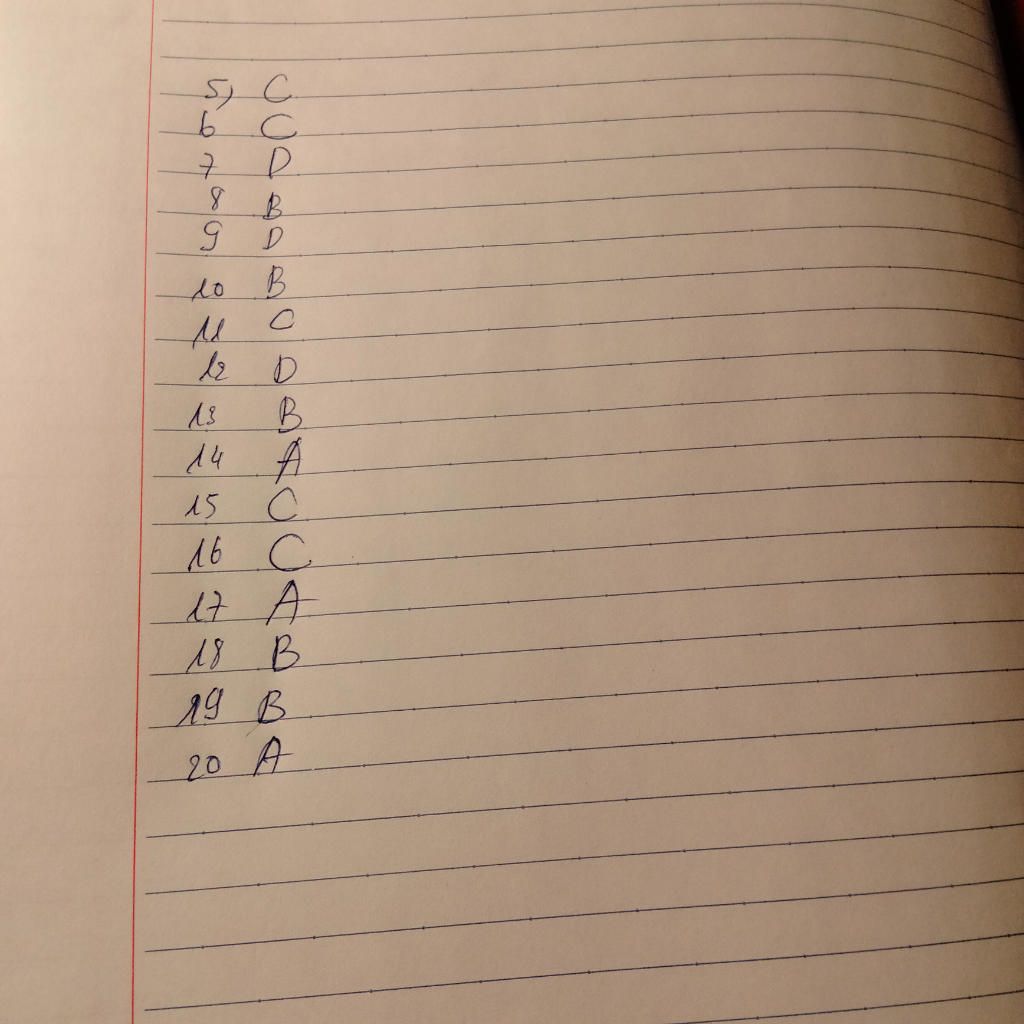 5) C
6 C
7 D
8 B
9 D
10 B
11 C
12 D
13 B
14 A
15 C
16 C
17 A
18 B
19 B
20 A